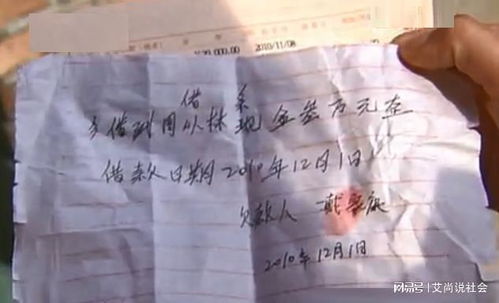 ¥20,000.00 2010/11/08
借条
今借到周从林现金叁万元整
借款日期2010年12月1日
欠款人 戴
2010年12月1日
搜狐号@艾尚说社会